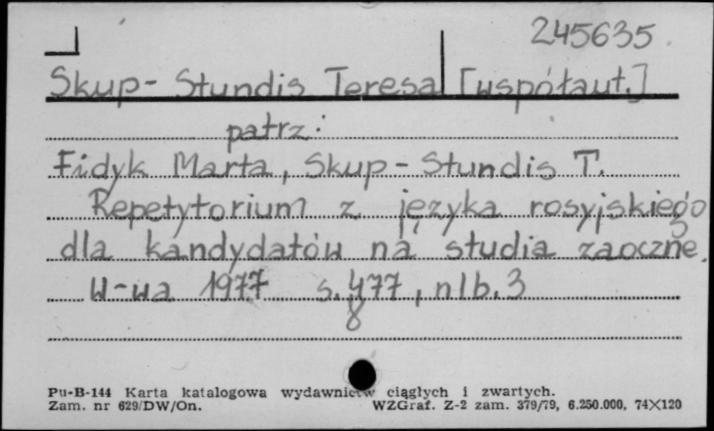 245635
Skup-Stundis Teresa [współaut.]
patrz:
Fidyk Marta, Skup-Stundis T.
Repetytorium z języka rosyjskiego
dla kandydatów na studia zaoczne.
W-wa 1977 s. 477, nlb. 3
8
Pu-B-144 Karta katalogowa wydawnictw ciągłych i zwartych.
Zam. nr 629/DW/On. WZGraf. Z-2 zam. 379/79, 6.250.000, 74×120